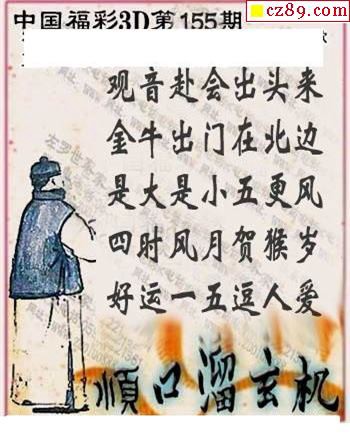 cz89.com
中国福彩3D第155期
观音赴会出头来
金牛出门在北边
是大是小五更风
四时风月贺猴岁
好运一五逗人爱
順口溜玄机